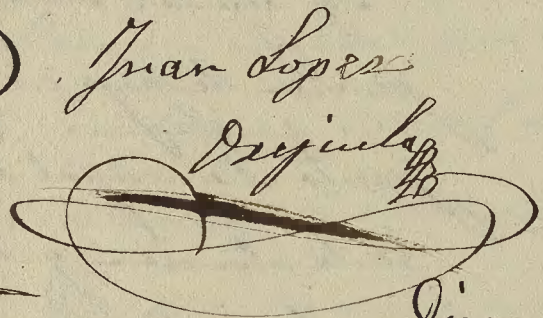 Juan Lopez
Orejuela